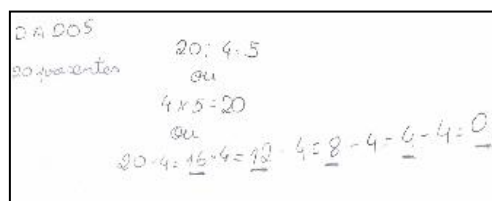 DADOS
20 presentes
20 : 4 = 5
ou
4 x 5 = 20
ou
20 - 4 = 16 - 4 = 12 - 4 = 8 - 4 = 4 - 4 = 0